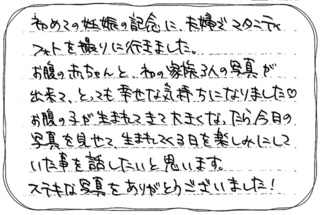 初めての妊娠の記念に、夫婦でマタニティ
フォトを撮りに行きました。
お腹の赤ちゃんと、初の家族3人の写真が
出来て、とっても幸せな気持ちになりました♡
お腹の子が生まれてきて大きくなったら今日の
写真を見せて、生まれてくる日を楽しみにして
いた事を話したいと思います。
ステキな写真をありがとうございました!